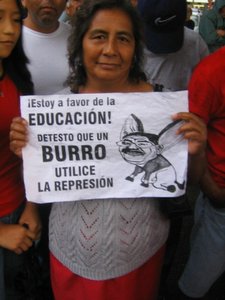 ¡Estoy a favor de la
EDUCACIÓN!
DETESTO QUE UN
BURRO
UTILICE
LA REPRESIÓN